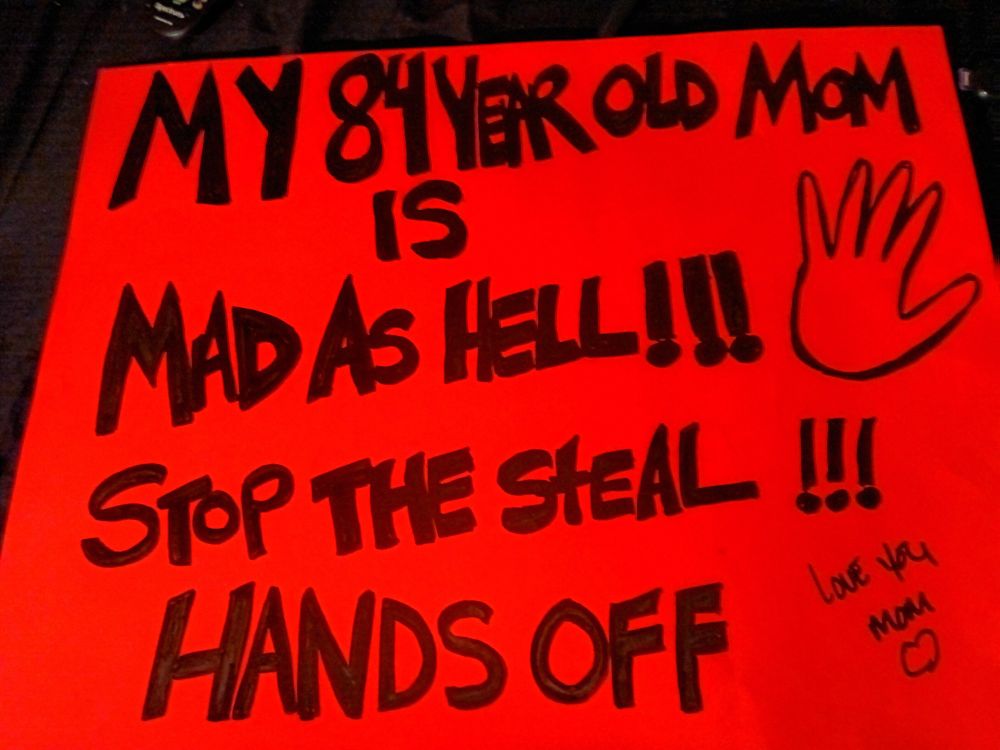 MY 84 YEAR OLD MOM
IS
MAD AS HELL!!!
STOP THE STEAL !!!
HANDS OFF
LOVE YOU
MOM